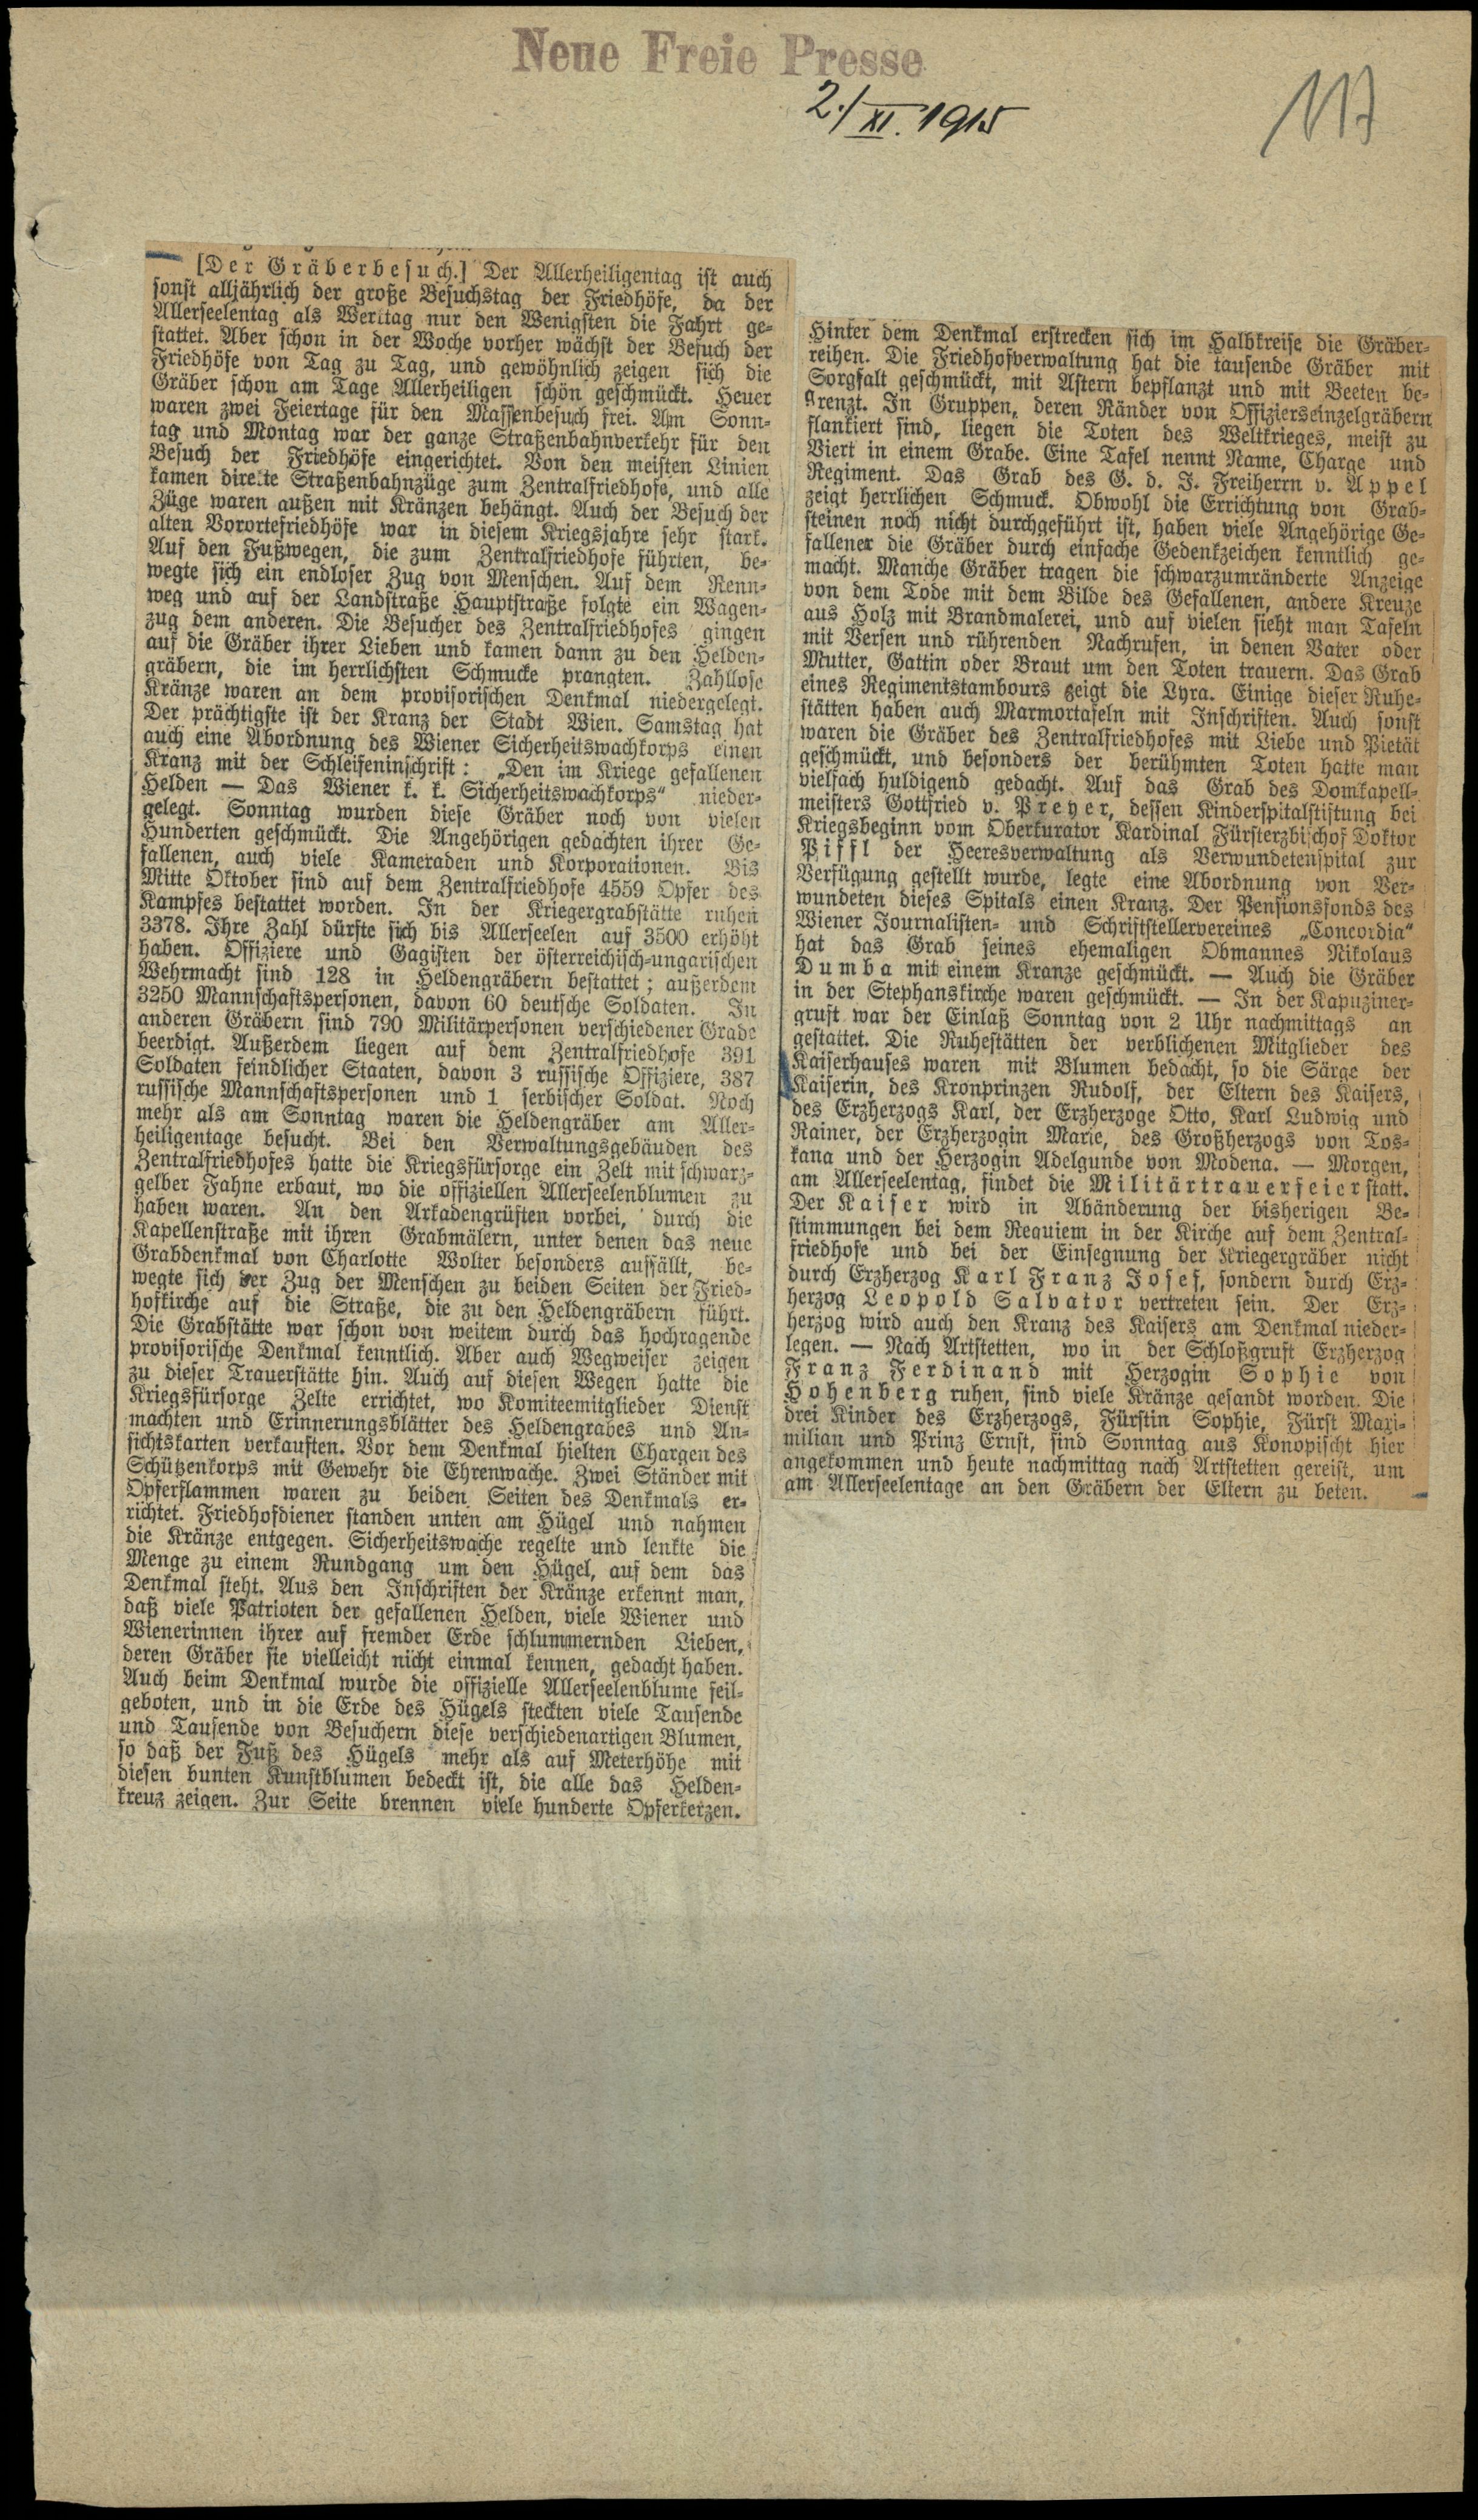 Neue Freie Presse
2./XI. 1915
117
[Der Gräberbesuch.] Der Allerheiligentag ist auch
sonst alljährlich der große Besuchstag der Friedhöfe, da der
Allerseelentag als Werktag nur den Wenigsten die Fahrt ge-
stattet. Aber schon in der Woche vorher wächst der Besuch der
Friedhöfe von Tag zu Tag, und gewöhnlich zeigen sich die
Gräber schon am Tage Allerheiligen schön geschmückt. Heuer
waren zwei Feiertage für den Massenbesuch frei. Am Sonn-
tag und Montag war der ganze Straßenbahnverkehr für den
Besuch der Friedhöfe eingerichtet. Von den meisten Linien
kamen direkte Straßenbahnzüge zum Zentralfriedhofe, und alle
Züge waren außen mit Kränzen behängt. Auch der Besuch der
alten Vorortefriedhöfe war in diesem Kriegsjahre sehr stark.
Auf den Fußwegen, die zum Zentralfriedhofe führten, be-
wegte sich ein endloser Zug von Menschen. Auf dem Renn-
weg und auf der Landstraße Hauptstraße folgte ein Wagen-
zug dem anderen. Die Besucher des Zentralfriedhofes gingen
auf die Gräber ihrer Lieben und kamen dann zu den Helden-
gräbern, die im herrlichsten Schmucke prangten. Zahllose
Kränze waren an dem provisorischen Denkmal niedergelegt.
Der prächtigste ist der Kranz der Stadt Wien. Samstag hat
auch eine Abordnung des Wiener Sicherheitswachkorps einen
Kranz mit der Schleifeninschrift: „Den im Kriege gefallenen
Helden — Das Wiener k. k. Sicherheitswachkorps“ nieder-
gelegt. Sonntag wurden diese Gräber noch von vielen
Hunderten geschmückt. Die Angehörigen gedachten ihrer Ge-
fallenen, auch viele Kameraden und Korporationen. Bis
Mitte Oktober sind auf dem Zentralfriedhofe 4559 Opfer des
Kampfes bestattet worden. In der Kriegergrabstätte ruhen
3378. Ihre Zahl dürfte sich bis Allerseelen auf 3500 erhöht
haben. Offiziere und Gagisten der österreichisch-ungarischen
Wehrmacht sind 128 in Heldengräbern bestattet; außerdem
3250 Mannschaftspersonen, davon 60 deutsche Soldaten. In
anderen Gräbern sind 790 Militärpersonen verschiedener Grade
beerdigt. Außerdem liegen auf dem Zentralfriedhofe 391
Soldaten feindlicher Staaten, davon 3 russische Offiziere, 387
russische Mannschaftspersonen und 1 serbischer Soldat. Noch
mehr als am Sonntag waren die Heldengräber am Aller-
heiligentage besucht. Bei den Verwaltungsgebäuden des
Zentralfriedhofes hatte die Kriegsfürsorge ein Zelt mit schwarz-
gelber Fahne erbaut, wo die offiziellen Allerseelenblumen zu
haben waren. An den Arkadengrüften vorbei, durch die
Kapellenstraße mit ihren Grabmälern, unter denen das neue
Grabdenkmal von Charlotte Wolter besonders auffällt, be-
wegte sich der Zug der Menschen zu beiden Seiten der Fried-
hofkirche auf die Straße, die zu den Heldengräbern führt.
Die Grabstätte war schon von weitem durch das hochragende
provisorische Denkmal kenntlich. Aber auch Wegweiser zeigen
zu dieser Trauerstätte hin. Auch auf diesen Wegen hatte die
Kriegsfürsorge Zelte errichtet, wo Komiteemitglieder Dienst
machten und Erinnerungsblätter des Heldengrabes und An-
sichtskarten verkauften. Vor dem Denkmal hielten Chargen des
Schützenkorps mit Gewehr die Ehrenwache. Zwei Ständer mit
Opferflammen waren zu beiden Seiten des Denkmals er-
richtet. Friedhofdiener standen unten am Hügel und nahmen
die Kränze entgegen. Sicherheitswache regelte und lenkte die
Menge zu einem Rundgang um den Hügel, auf dem das
Denkmal steht. Aus den Inschriften der Kränze erkennt man,
daß viele Patrioten der gefallenen Helden, viele Wiener und
Wienerinnen ihrer auf fremder Erde schlummernden Lieben,
deren Gräber sie vielleicht nicht einmal kennen, gedacht haben.
Auch beim Denkmal wurde die offizielle Allerseelenblume feil-
geboten, und in die Erde des Hügels steckten viele Tausende
und Tausende von Besuchern diese verschiedenartigen Blumen,
so daß der Fuß des Hügels mehr als auf Meterhöhe mit
diesen bunten Kunstblumen bedeckt ist, die alle das Helden-
kreuz zeigen. Zur Seite brennen viele hunderte Opferkerzen.
Hinter dem Denkmal erstrecken sich im Halbkreise die Gräber-
reihen. Die Friedhofverwaltung hat die tausende Gräber mit
Sorgfalt geschmückt, mit Astern bepflanzt und mit Beeten be-
grenzt. In Gruppen, deren Ränder von Offizierseinzelgräbern
flankiert sind, liegen die Toten des Weltkrieges, meist zu
Viert in einem Grabe. Eine Tafel nennt Name, Charge und
Regiment. Das Grab des G. d. I. Freiherrn v. Appel
zeigt herrlichen Schmuck. Obwohl die Errichtung von Grab-
steinen noch nicht durchgeführt ist, haben viele Angehörige Ge-
fallener die Gräber durch einfache Gedenkzeichen kenntlich ge-
macht. Manche Gräber tragen die schwarzumränderte Anzeige
von dem Tode mit dem Bilde des Gefallenen, andere Kreuze
aus Holz mit Brandmalerei, und auf vielen sieht man Tafeln
mit Versen und rührenden Nachrufen, in denen Vater oder
Mutter, Gattin oder Braut um den Toten trauern. Das Grab
eines Regimentstambours zeigt die Lyra. Einige dieser Ruhe-
stätten haben auch Marmortafeln mit Inschriften. Auch sonst
waren die Gräber des Zentralfriedhofes mit Liebe und Pietät
geschmückt, und besonders der berühmten Toten hatte man
vielfach huldigend gedacht. Auf das Grab des Domkapell-
meisters Gottfried v. Preyer, dessen Kinderspitalstiftung bei
Kriegsbeginn vom Oberkurator Kardinal Fürsterzbischof Doktor
Piffl der Heeresverwaltung als Verwundetenspital zur
Verfügung gestellt wurde, legte eine Abordnung von Ver-
wundeten dieses Spitals einen Kranz. Der Pensionsfonds des
Wiener Journalisten- und Schriftstellervereines „Concordia“
hat das Grab seines ehemaligen Obmannes Nikolaus
Dumba mit einem Kranze geschmückt. — Auch die Gräber
in der Stephanskirche waren geschmückt. — In der Kapuziner-
gruft war der Einlaß Sonntag von 2 Uhr nachmittags an
gestattet. Die Ruhestätten der verblichenen Mitglieder des
Kaiserhauses waren mit Blumen bedacht, so die Särge der
Kaiserin, des Kronprinzen Rudolf, der Eltern des Kaisers,
des Erzherzogs Karl, der Erzherzoge Otto, Karl Ludwig und
Rainer, der Erzherzogin Marie, des Großherzogs von Tos-
kana und der Herzogin Adelgunde von Modena. — Morgen,
am Allerseelentag, findet die Militärtrauerfeier statt.
Der Kaiser wird in Abänderung der bisherigen Be-
stimmungen bei dem Requiem in der Kirche auf dem Zentral-
friedhofe und bei der Einsegnung der Kriegergräber nicht
durch Erzherzog Karl Franz Josef, sondern durch Erz-
herzog Leopold Salvator vertreten sein. Der Erz-
herzog wird auch den Kranz des Kaisers am Denkmal nieder-
legen. — Nach Artstetten, wo in der Schloßgruft Erzherzog
Franz Ferdinand mit Herzogin Sophie von
Hohenberg ruhen, sind viele Kränze gesandt worden. Die
drei Kinder des Erzherzogs, Fürstin Sophie, Fürst Maxi-
milian und Prinz Ernst, sind Sonntag aus Konopischt hier
angekommen und heute nachmittag nach Artstetten gereist, um
am Allerseelentage an den Gräbern der Eltern zu beten.